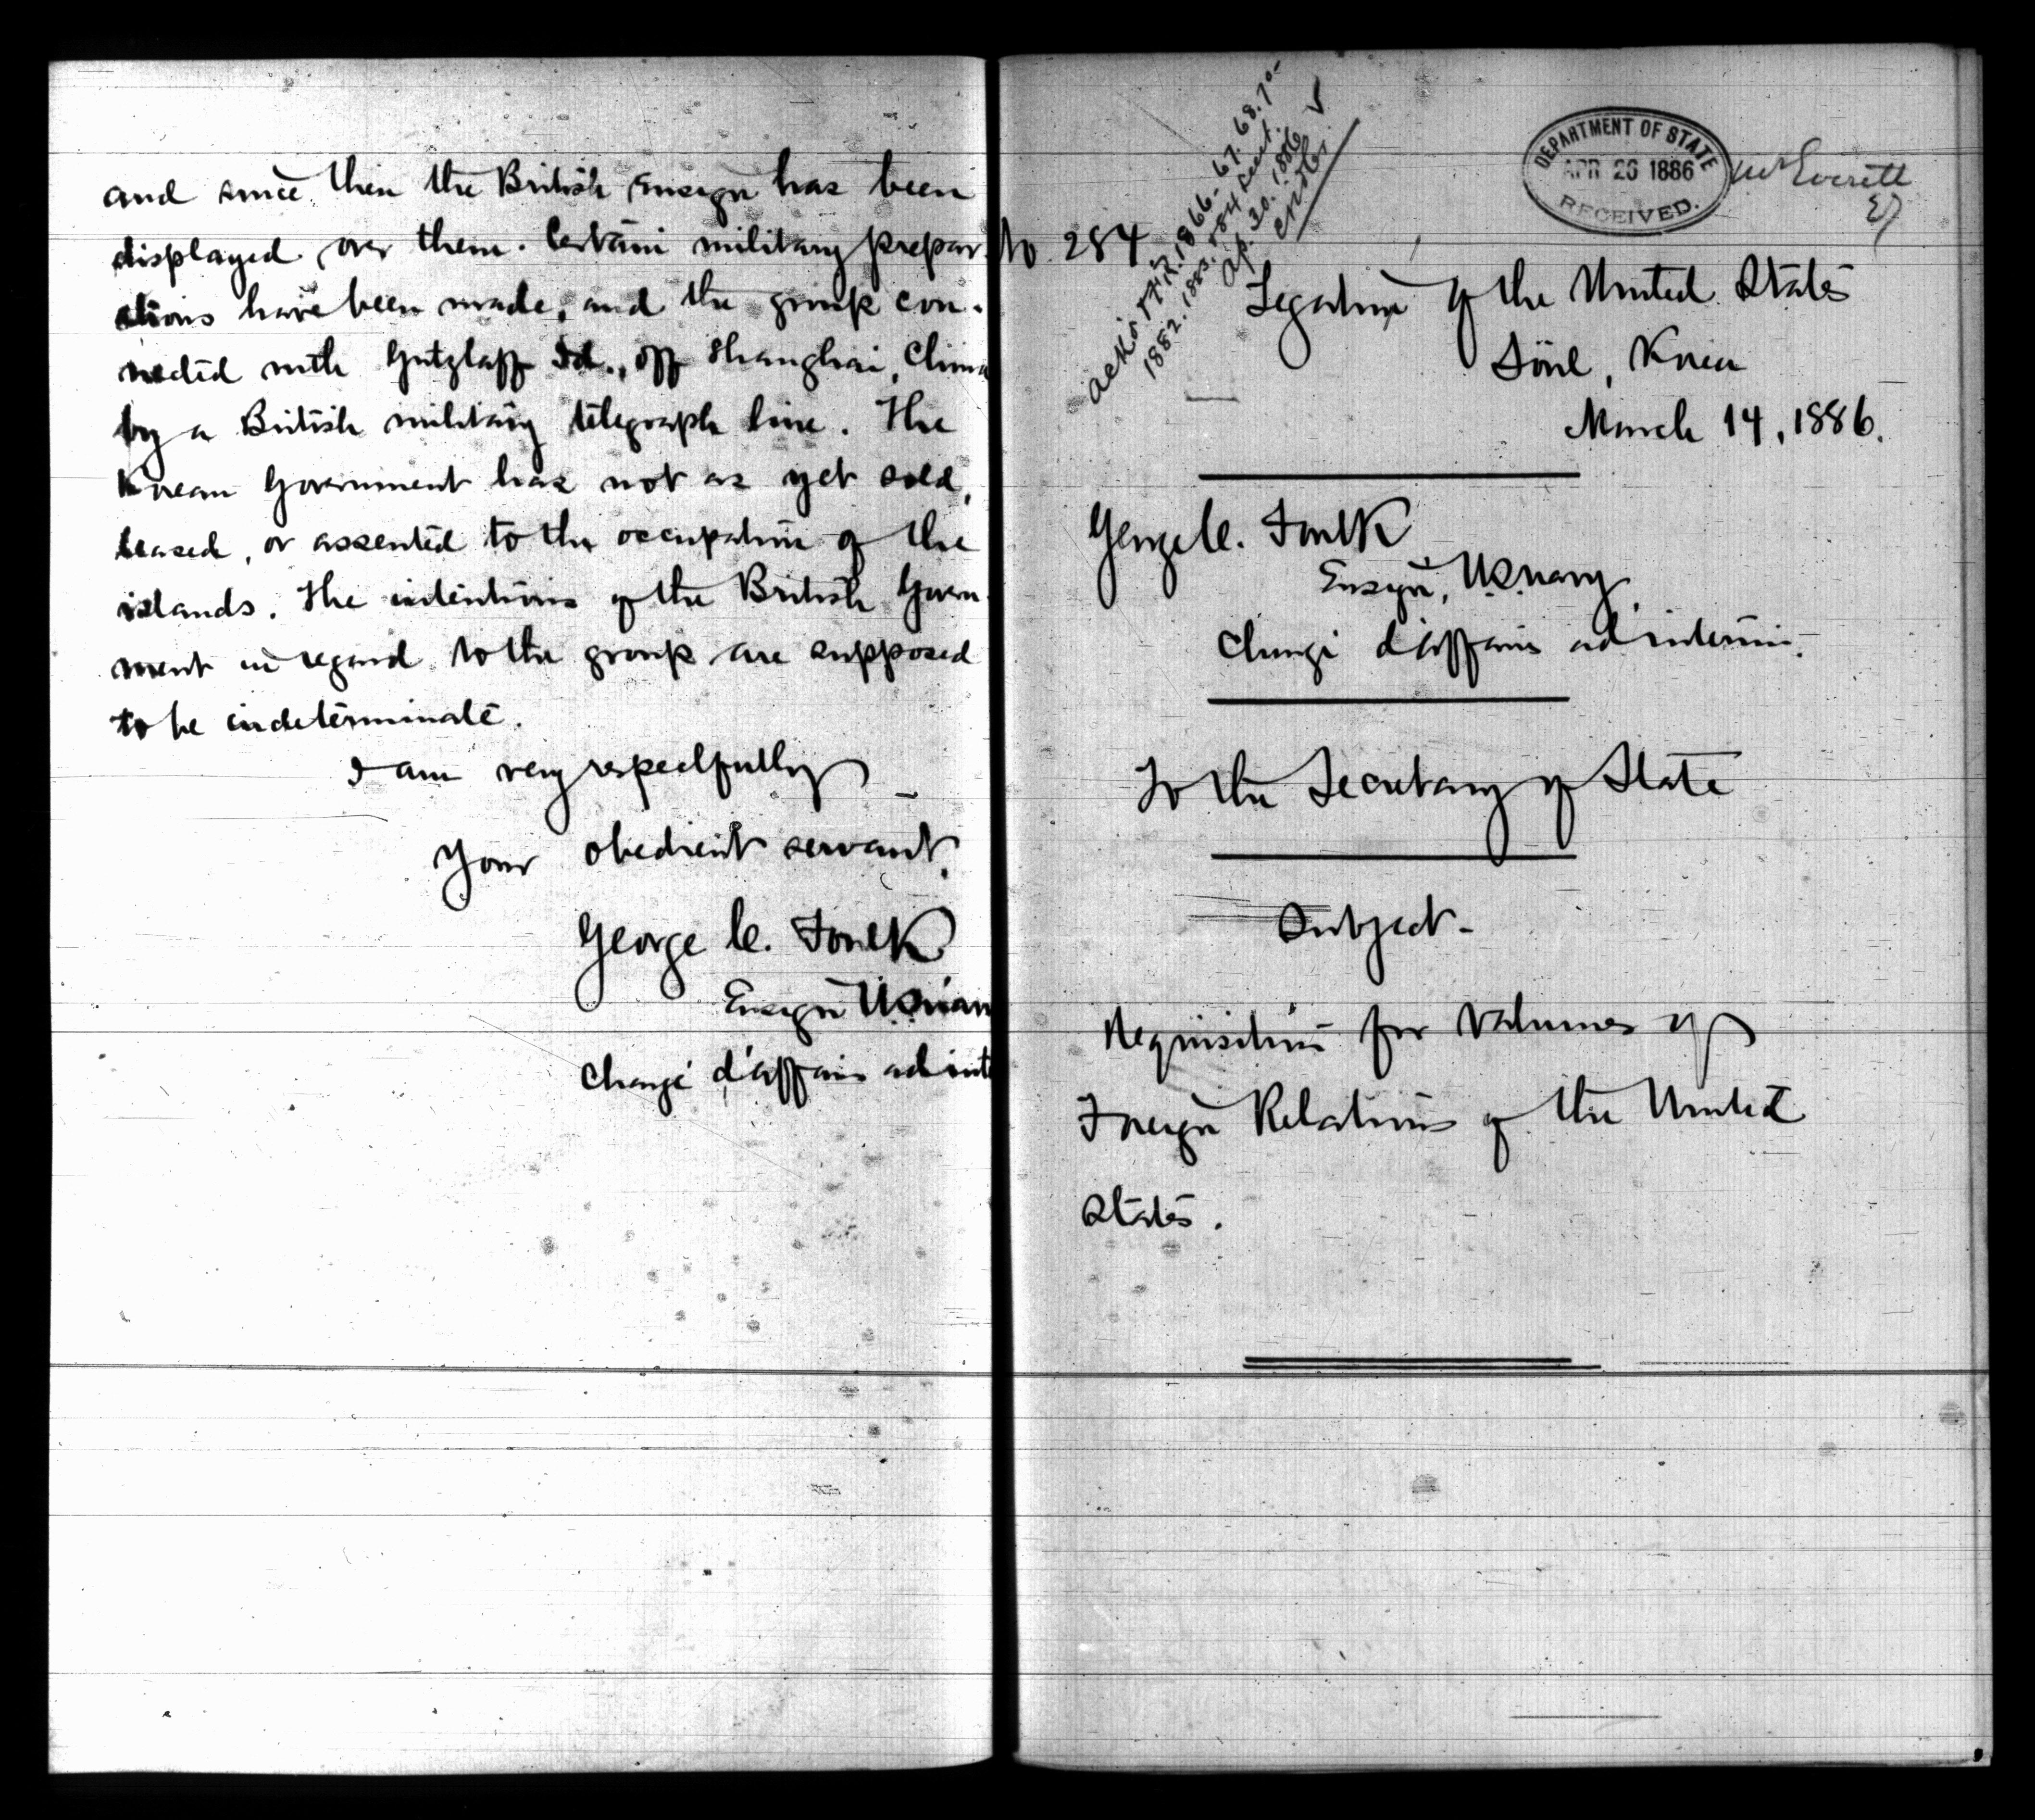 and since then the British Ensign has been
displayed over them. Certain military prepar-
ations have been made, and the group con-
nected with Gutzlaff Id., off Shanghai, China
by a British military telegraph line. The
Korean Government has not as yet sold,
leased, or assented to the occupation of the
islands. The intentions of the British Govern-
ment in regard to the group are supposed
to be indeterminate.
I am very respectfully
Your obedient servant,
George C. Foulk
Ensign US nav
Chargé d'affairs ad int
No 284
Ack'd. F.R. 1866-67. 68. 70-
1882. 1883. & 84 sent.
Ap. 30. 1886
DEPARTMENT OF STATE
APR 26 1886
RECEIVED.
Mr Everett
Legation of the United States
Söul, Korea
March 14, 1886.
George C. Foulk
Ensign, US navy
Chargé d'affairs ad interim.
To the Secretary of State
Subject-
Requisition for volumes of
Foreign Relations of the United
States.